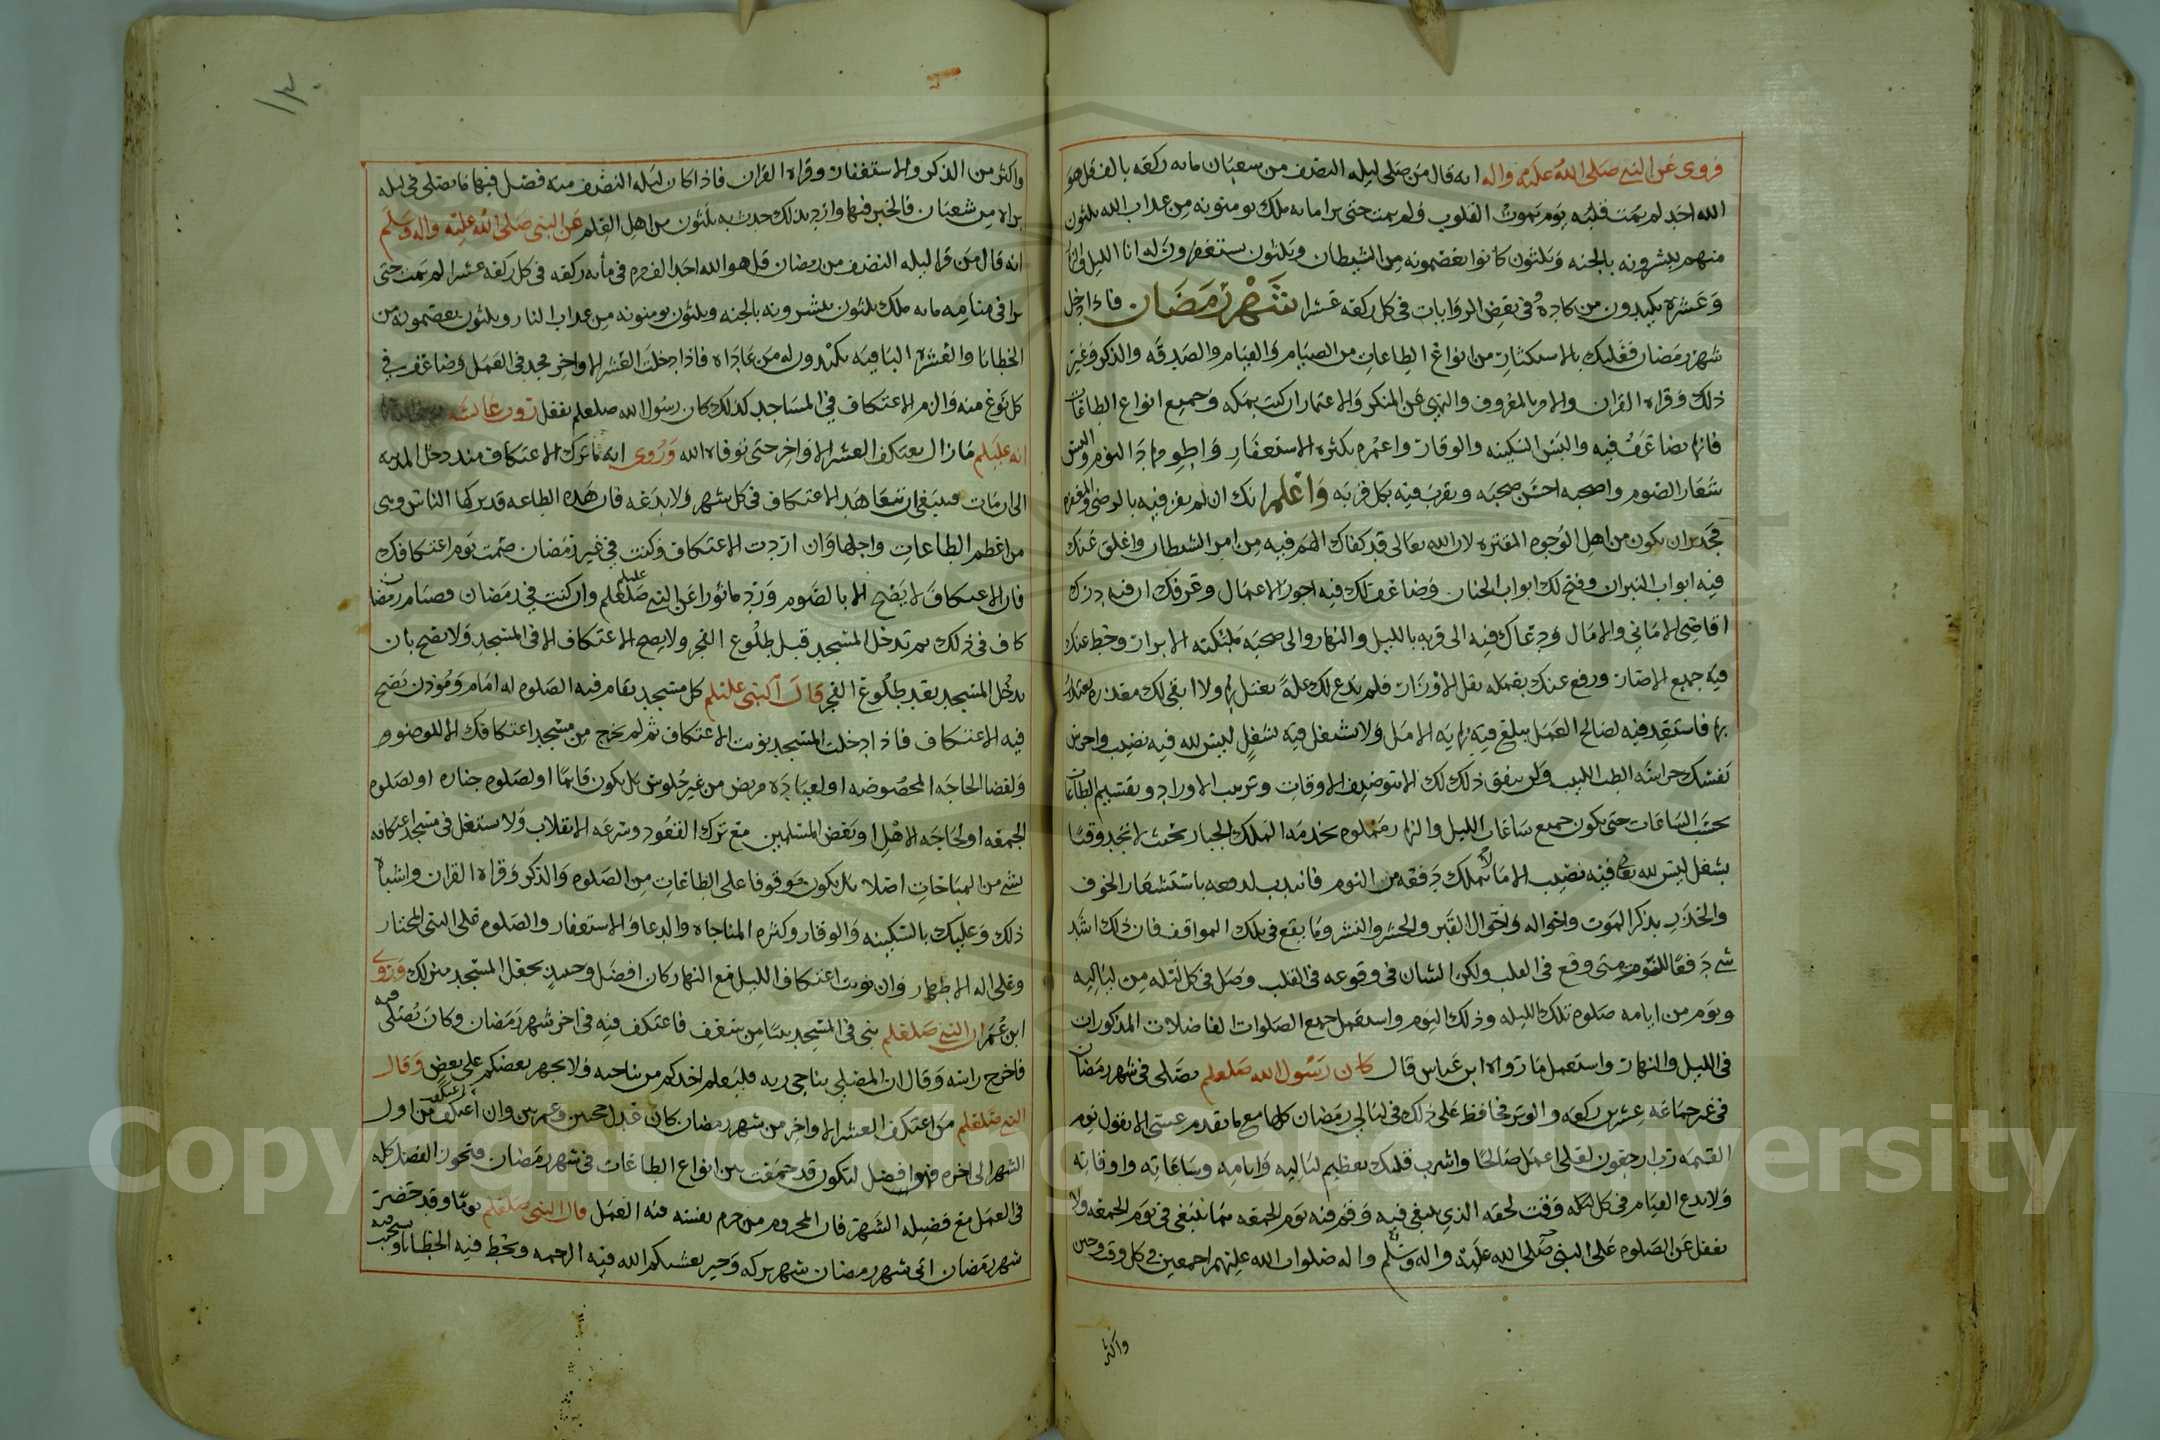 فروى عن النبي صلى الله عليه واله انه قال من صلى ليله النصف من شعبان مايه ركعه بالف قل هو
الله احد لم يمت قلبه يوم تموت القلوب ولم يمت حتى يرا مايه ملك يومنونه من عذاب الله ثلثون
منهم يبشرونه بالجنه وثلثون كانوا يعصمونه من الشيطان وثلثون يستغفرون له انا الليل
وعشره يكيدون من كاده وفي بعض الروايات في كل ركعه عشرا شهر رمضان فاذا دخل
شهر رمضان فعليك بالاستكثار من انواع الطاعات من الصيام والقيام والصدقه والذكر وغير
ذلك وقراه القران والامر بالمعروف والنهي عن المنكر والاعتمار ان كنت بمكه وجميع انواع الطاعات
فانها تضاعف فيه والبس السكينه والوقار واعمره بكثره الاستغفار
شعار الصوم واصحبه احسن صحبه وتقرب فيه بكل قربه واعلم انك ان لم تفز فيه بالرضى والمغفره
فجدير ان تكون من اهل الوجوه المغبره لان الله تعالى قد كفاك الهم فيه من امر الشيطان واغلق عنك
فيه ابواب النيران وفتح لك ابواب الجنان وضاعف لك فيه اجور الاعمال وعرفك ان فيه درك
اقاصى الاماني والامال ودعاك فيه الى قربه بالليل والنهار والى صحبه ملئكته الابرار وحط عنك
فيه جميع الاصار ورفع عنك بفضله ثقل الاوزار فلم يدع لك علة تعتل بها ولا ابقى لك معذره تعتذر
بها فاستعد فيه لصالح العمل تبلغ فيه نهايه الامل ولا تشغل فيه بشغل ليس لله فيه نصيب واحرس
نفسك حراسه الطب اللبيب ولن يتفق ذلك لك الا بتوظيف الاوقات وترتيب الاوراد وتقسيم الطاعات
بحسب الساعات حتى يكون جميع ساعات الليل والنهار مملوه بخدمه الملك الجبار بحيث لا تجد وقتا
بشغل ليس لله تعالى فيه نصيب الا ما لا تملك دفعه من النوم فانتدب لدفعه باستشعار الخوف
والحذر بذكر الموت واحواله واحوال القبر والحشر والنشر وما يقع في تلك المواقف فان ذلك اشد
شي دفعا للنوم متى وقع في القلب ولكن الشان في وقوعه في القلب وصل في كل ليله من لياليه
ويوم من ايامه صلوه تلك الليله وذلك اليوم واستعمل جميع الصلوات الفاضلات المذكورات
في الليل والنهار واستعمل ما رواه ابن عباس قال كان رسول الله صلعلم يصلي في شهر رمضان
في غير جماعه عشرين ركعه والوتر فحافظ على ذلك في ليالي رمضان كلها مع ما تقدم عسى الا تقول يوم
القيمه رب ارجعون لعلي اعمل صالحا واشرب قلبك تعظيم لياليه وايامه وساعاته واوقاته
ولا تدع القيام في كل ليله وقت لحقه الذي ينبغي فيه وقم فيه يوم الجمعه بما ينبغي في يوم الجمعه ولا
تغفل عن الصلوه على النبي صلى الله عليه واله وسلم واله صلوات الله عليهم اجمعين في كل وقت وحين
واكثر
واكثر من الذكر والاستغفار وقراه القران فاذا كان ليله النصف منه فضل فيها ما تصلي في ليله
براه من شعبان فالخبر فيها وارد بذلك حدث به ثلثون من اهل العلم عن النبي صلى الله عليه واله وسلم
انه قال من قرا ليله النصف من رمضان قل هو الله احد الف مره في مأيه ركعه في كل ركعه عشرا لم يمت حتى
يرا في منامه مايه ملك ثلثون يبشرونه بالجنه وثلثون يومنونه من عذاب النار وثلثون يعصمونه من
الخطايا والعشره الباقيه يكيدون له من عاداه فاذا دخلت العشر الاواخر فجد في العمل وضاعف في
كل نوع منه والزم الاعتكاف في المساجد كذلك كان رسول الله صلعلم يفعل روت عائشه
انه عليلم ما زال يعتكف العشر الاواخر حتى توفاه الله وروى انه ما ترك الاعتكاف منذ دخل المدينه
الى ان مات فينبغي ان تتعاهد الاعتكاف في كل شهر ولا تدعه فان هذه الطاعه قد تركها الناس وهي
من اعظم الطاعات واجلها وان اردت الاعتكاف وكنت في غير رمضان صمت يوم اعتكافك
فان الاعتكاف لا يصح الا بالصوم ورد ماثورا عن النبي صلعلم وان كنت في رمضان فصيام رمضان
كاف في ذلك ثم تدخل المسجد قبل طلوع الفجر ولا يصح الاعتكاف الا في المسجد ولا يصح بان
تدخل المسجد بعد طلوع الفجر قال النبي عليلم كل مسجد يقام فيه الصلوه له امام وموذن يصح
فيه الاعتكاف فاذا دخلت المسجد نويت الاعتكاف ثم لم تخرج من مسجد اعتكافك الا للوضوء
ولقضا الحاجه المخصوصه او لعياده مريض من غير جلوس بل يكون قايما او لصلوه جنازه او لصلوه
الجمعه او لحاجه الاهل او بعض المسلمين مع ترك القعود وسرعه الانقلاب ولا تشتغل في مسجد اعتكافه
بشي من المباحات اصلا بل يكون موقوفا على الطاعات من الصلوه والذكر وقراه القران واشباه
ذلك وعليك بالسكينه والوقار وكثره المناجاه والدعا والاستغفار والصلوه على النبي المختار
وعلى اله الاطهار وان نويت اعتكاف الليل مع النهار كان افضل وحينئذ تجعل المسجد منزلك وروى
ابن عمر ان النبي صلعلم بنى في المسجد بيتا من سعف فاعتكف فيه في اخر شهر رمضان وكان يصلي فيه
فاخرج راسه وقال ان المصلي يناجي ربه فليعلم احدكم من يناجيه ولا يجهر بعضكم على بعض وقال
النبي صلعلم من اعتكف العشر الاواخر من شهر رمضان كان عدل حجتين وعمرتين وان اعتكفت من اول
الشهر الى اخره فهو افضل لتكون قد جمعت بين انواع الطاعات في شهر رمضان فتحوز الفضل كله
في العمل مع فضيله الشهر فان المحروم من حرم نفسه فيه العمل قال النبي صلعلم يوما وقد حضر
شهر رمضان اتى شهر رمضان شهر بركه وخير يغشيكم الله فيه الرحمه ويحط فيه الخطايا ويستجيب فيه
Copyright © King Saud University